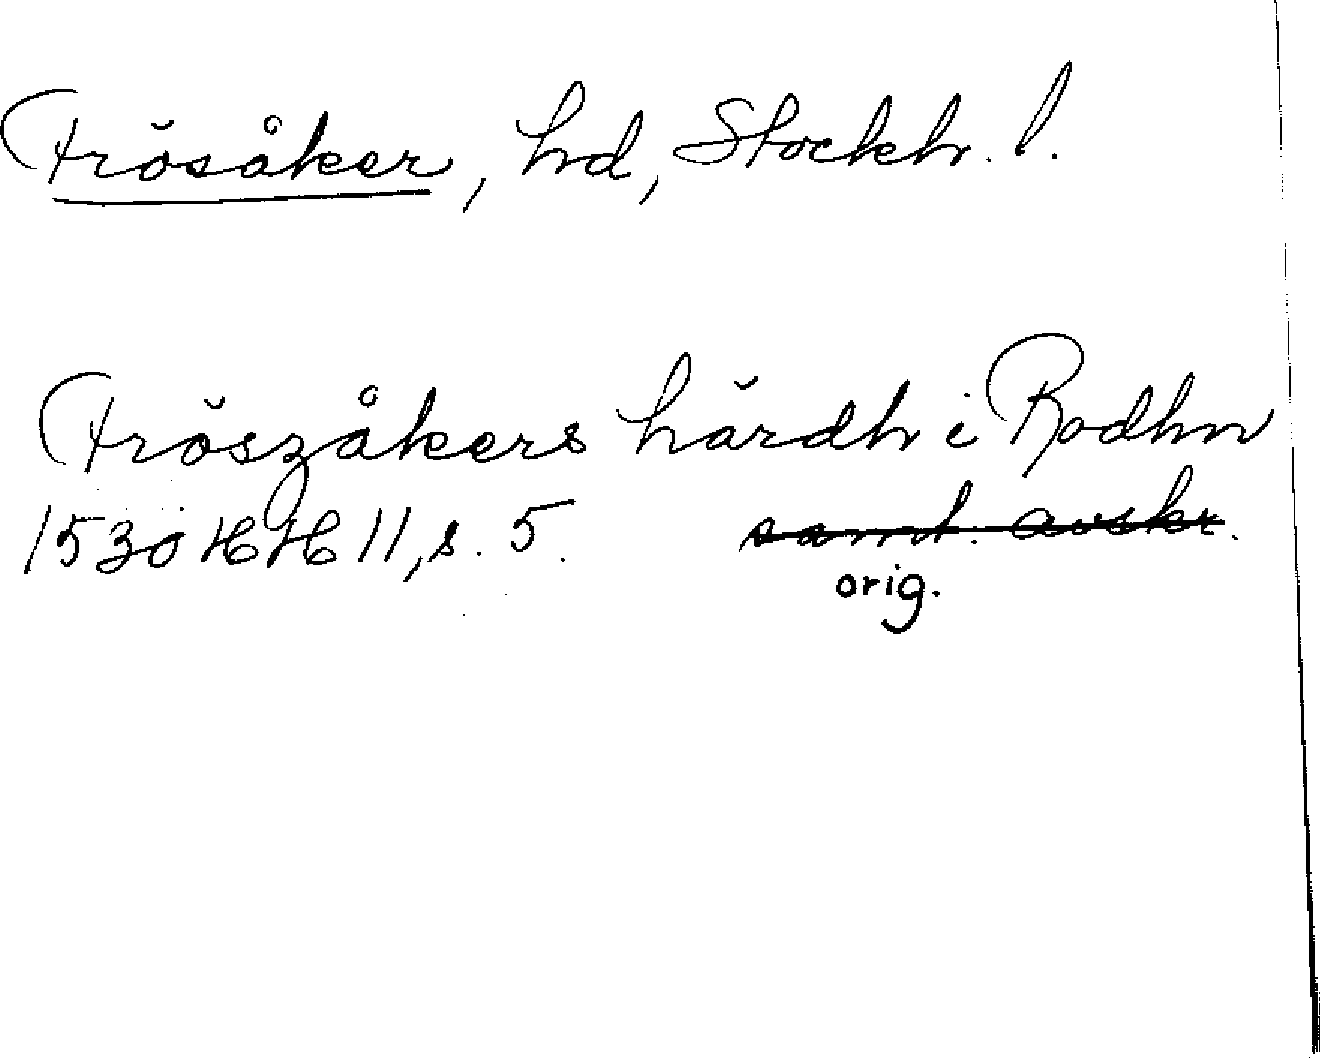 Frösåker, hd, Stockh. l.
Fröszåkers härdh i Rodhn
1530 HH 11, s. 5. samt. avskr.
orig.